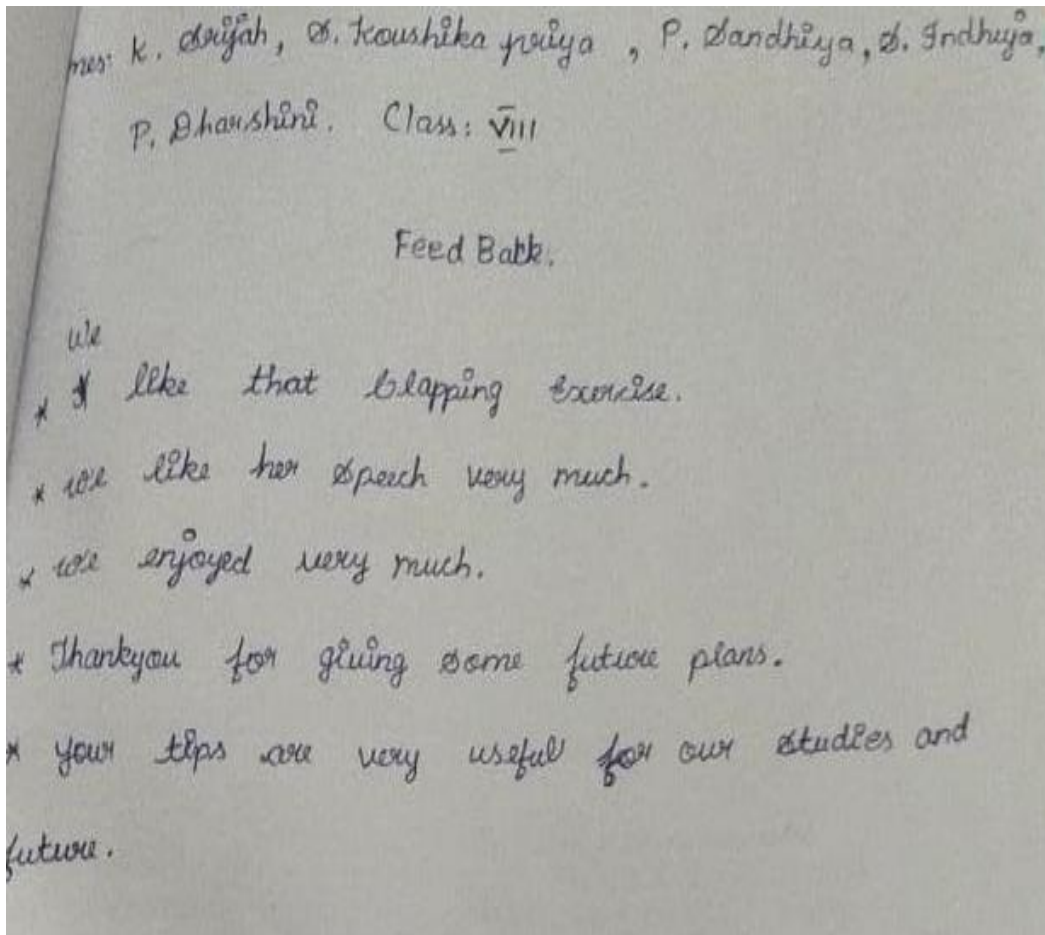 mes: K. Srijah, S. Koushika priya, P. Sandhiya, S. Indhuja,
P. Dharshini. Class: VIII
Feed Back.
We
* I like that clapping exercise.
* We like her speech very much.
* We enjoyed very much.
* Thankyou for giving some future plans.
* your tips are very useful for our studies and
future.